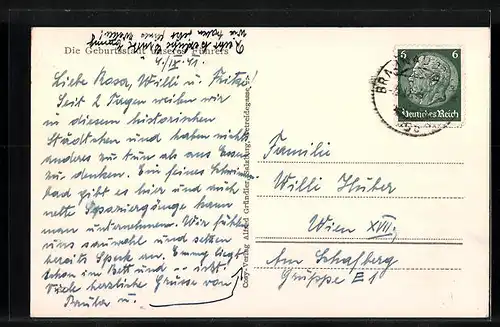 Die Geburtsstadt unseres Führers
Liebe Rosa, Willi u. Fritzi!
Seit 2 Tagen weilen wir
in diesem historischen
Städtchen und haben nichts
anderes zu tun als ans Essen
zu denken. Ein feines Schwimm-
bad gibt es hier und auch
nette Spaziergänge kann
man unternehmen. Wir fühlen
uns sauwohl und setzen
bereits Speck an. Emmy liegt
schon im Bett und
Viele herzliche Grüsse von
u.
Cosy-Verlag Alfred Gründler, Salzburg,
6 6
Deutsches Reich
BRAUNAU
Familie
Willi Huber
Wien XVII.
Am Schafberg
Gruppe 1